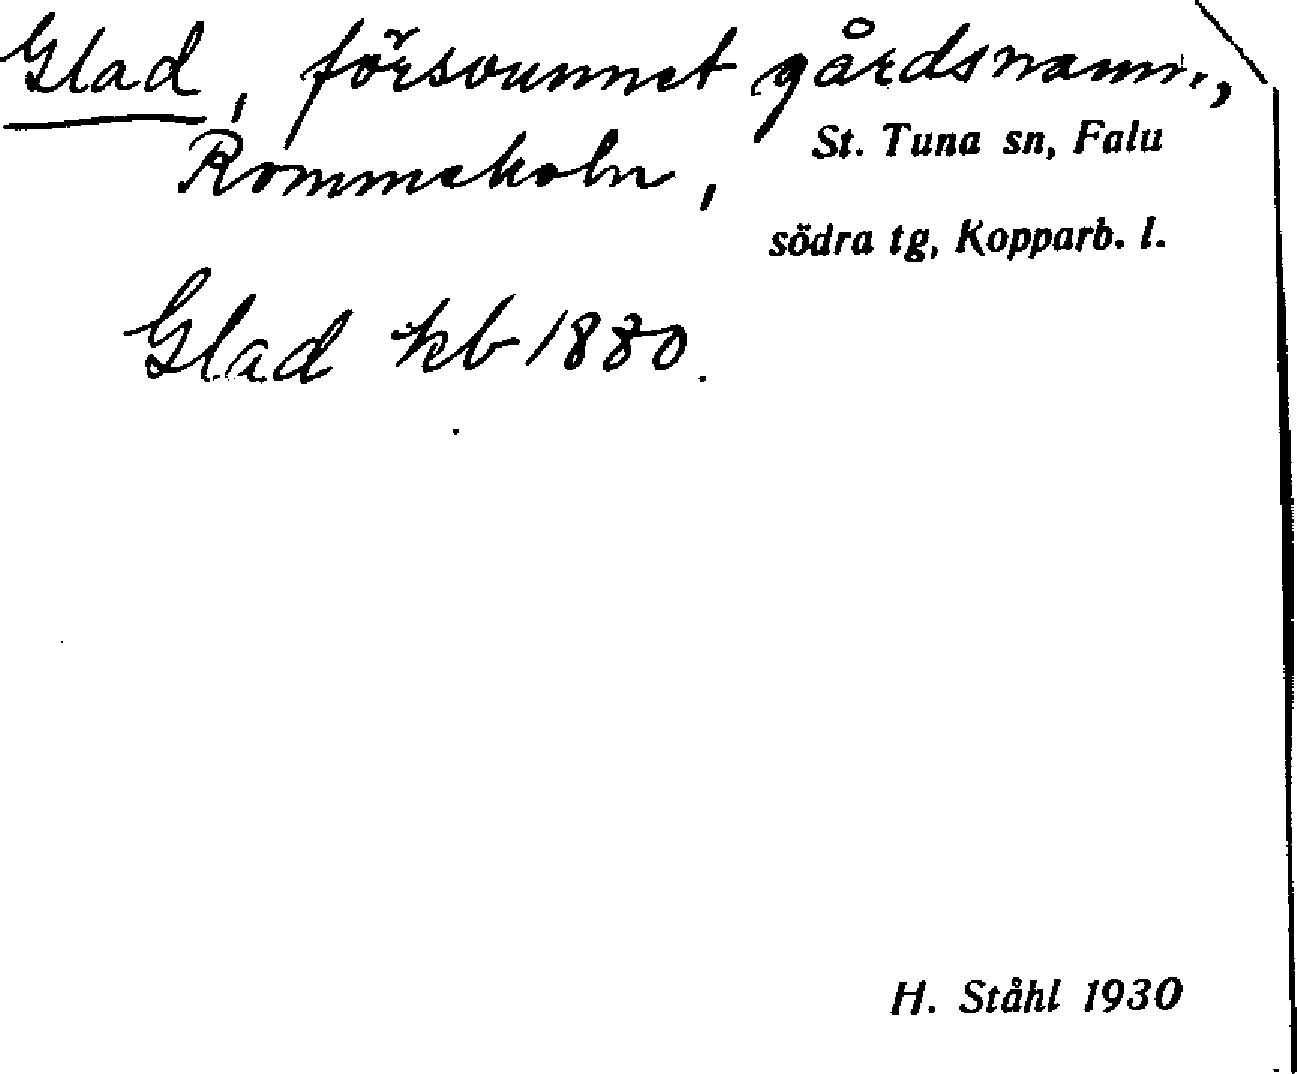 Glad, försvunnet gårdsnamn.,
Rommeholn,
St. Tuna sn, Falu
södra tg, Kopparb. l.
Glad kb 1880.
H. Ståhl 1930